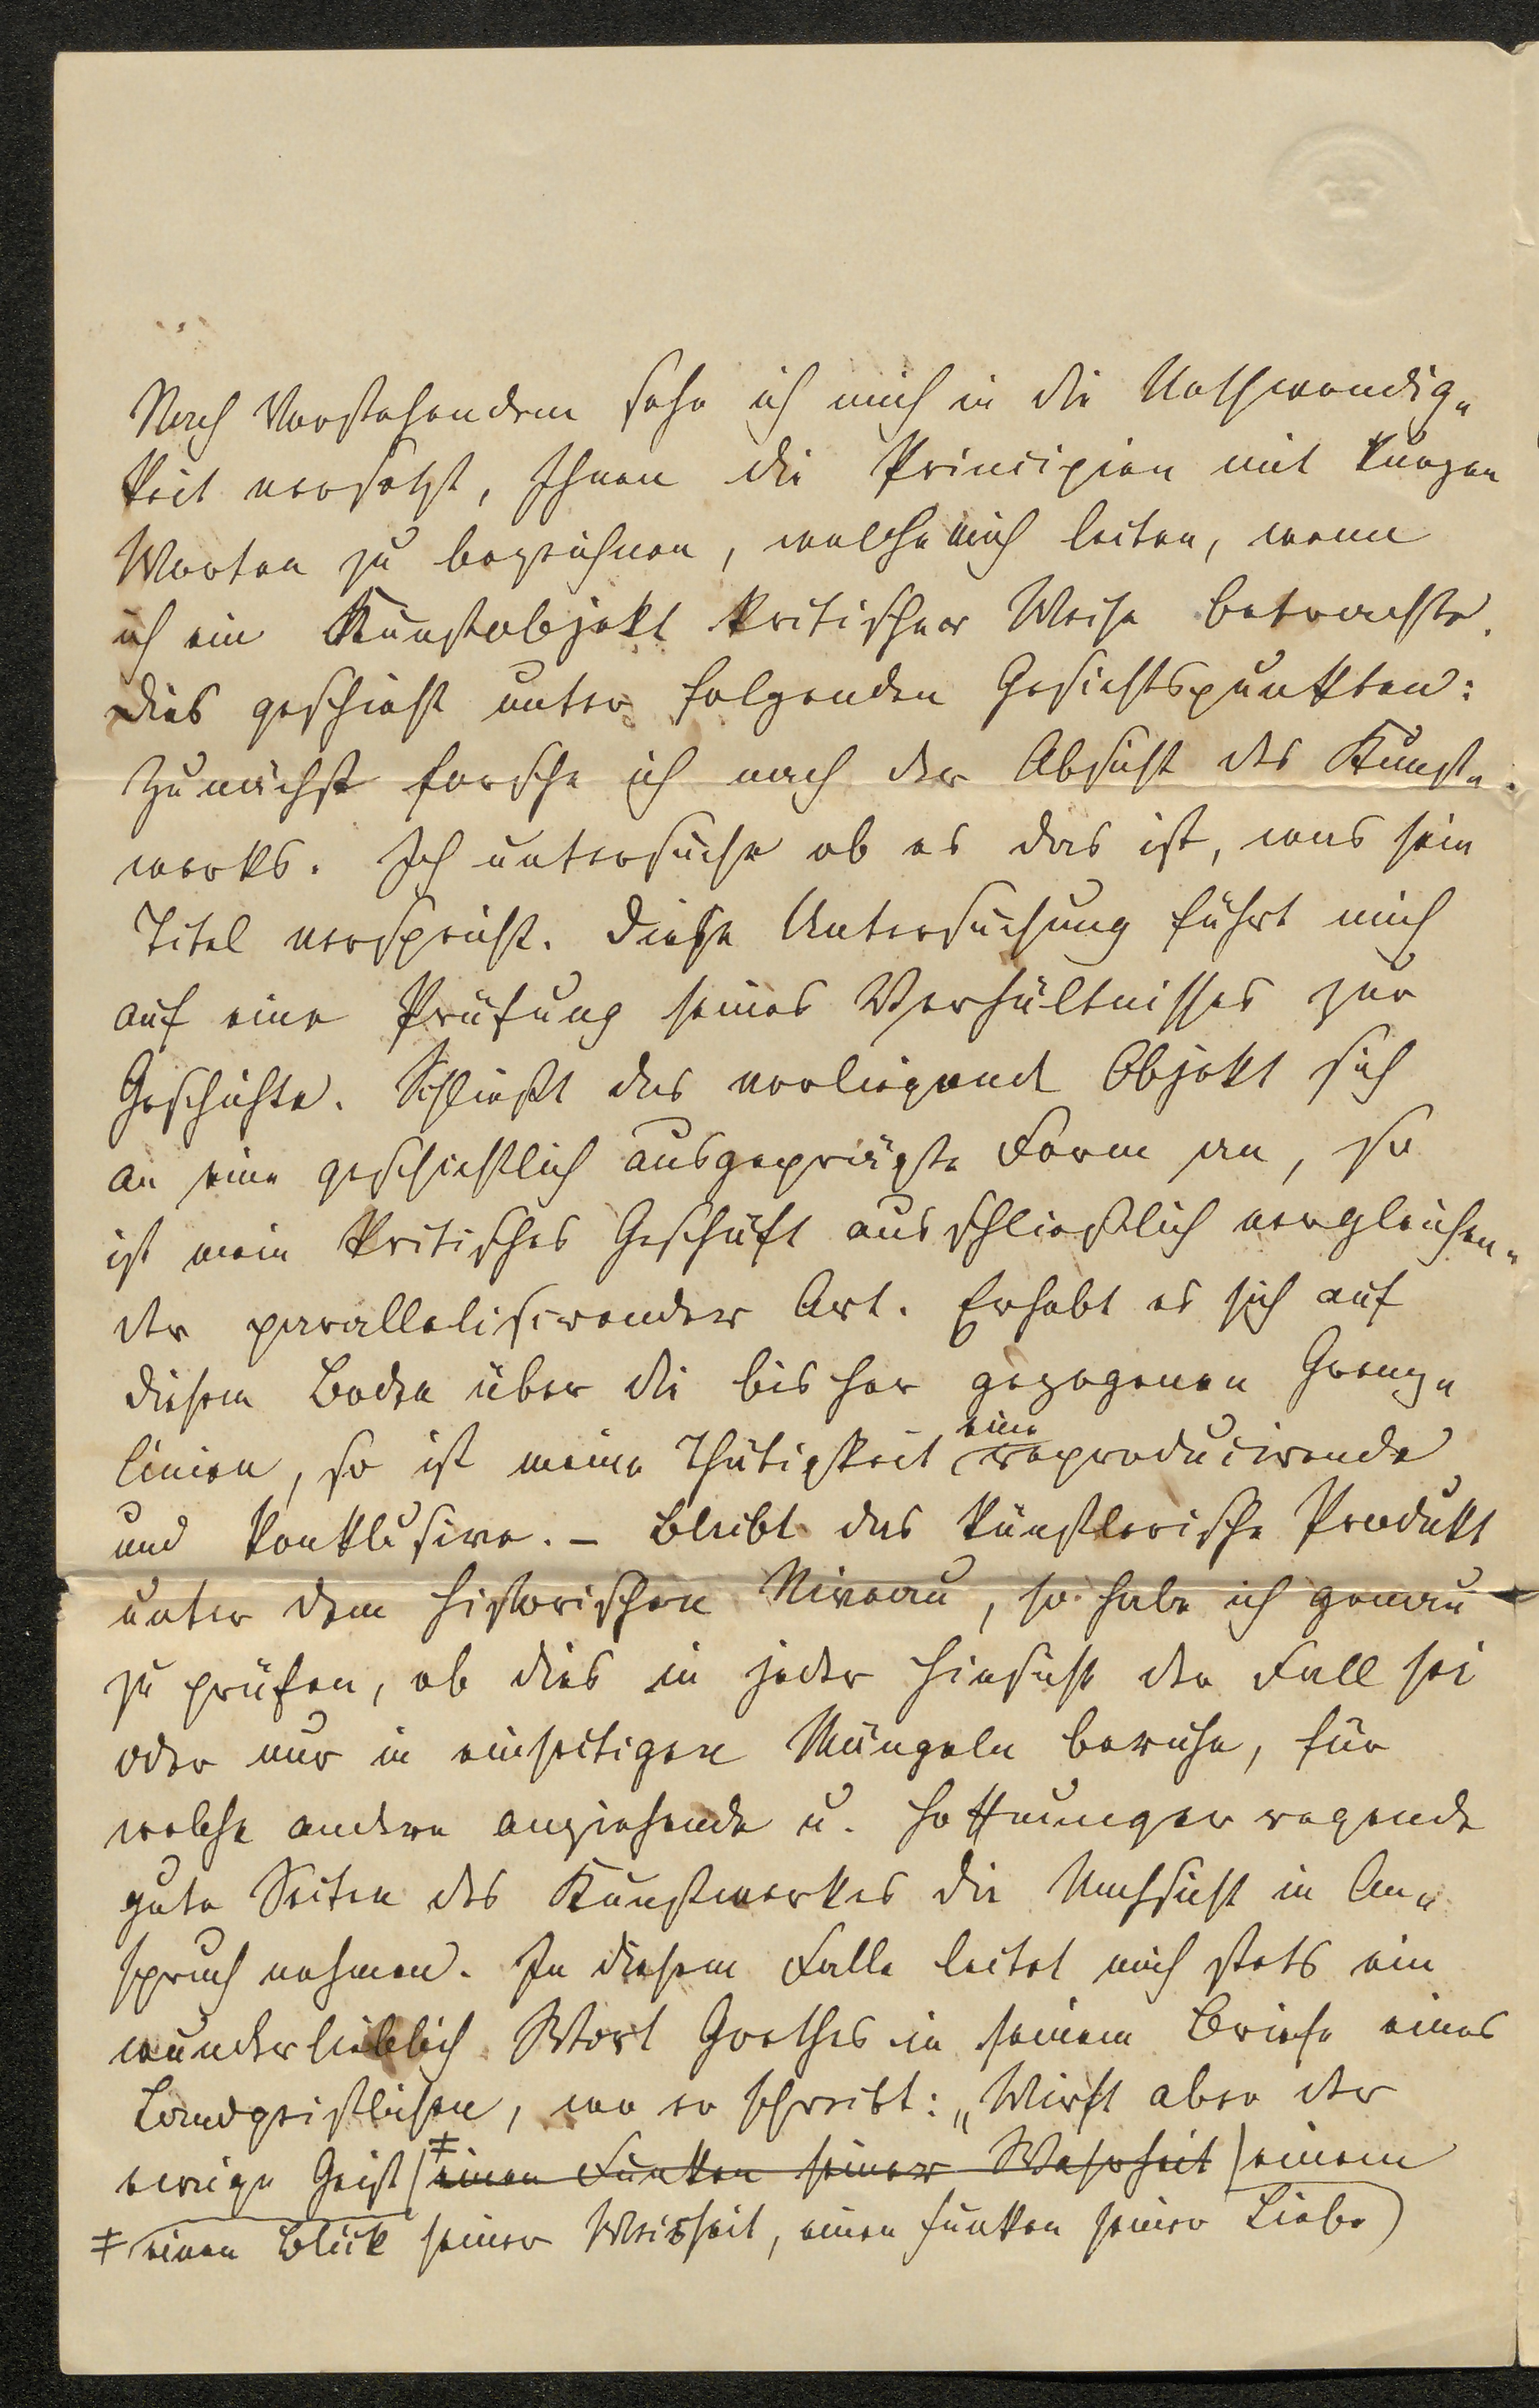 Nach Vorstehendem sehe ich mich in die Nothwendig-
keit versetzt, Ihnen die Principien mit kurzen
Worten zu bezeichnen, welche mich leiten, wenn
ich ein Kunstobjekt kritischer Weise betrachte.
Dies geschieht unter folgenden Gesichtspunkten:
Zunächst forsche ich nach der Absicht des Kunst-
werks. Ich untersuche ob es das ist, was sein
Titel verspricht. Diese Untersuchung führt mich
auf eine Prüfung seines Verhältnisses zur
Geschichte. Schließt das vorliegende Objekt sich
an eine geschichtlich ausgeprägte Form an, so
ist mein kritisches Geschäft ausschließlich vergleichen-
der parallelisirender Art. Erhebt es sich auf
diesem Boden über die bisher gezogenen Grenz-
linien, so ist meine Thätigkeit eine reproducirende
und konklusive. – Bleibt das künstlerische Produkt
unter dem historischen Niveau, so habe ich genau
zu prüfen, ob dies in jeder Hinsicht der Fall sei
oder nur in einseitigen Mängeln beruhe, für
welche andere anziehende u. hoffnungerregende
gute Seiten des Kunstwerkes die Nachsicht in An-
spruch nehmen. In diesem Falle leitet mich stets ein
wunderlieblich Wort Goethes in seinem Briefe eines
Landgeistlichen, wo er schreibt: „Wirft aber der
ewige Geist (‡ einen Funken seiner Wahrheit) einem
‡ einen Blick seiner Weisheit, einen Funken seiner Liebe)